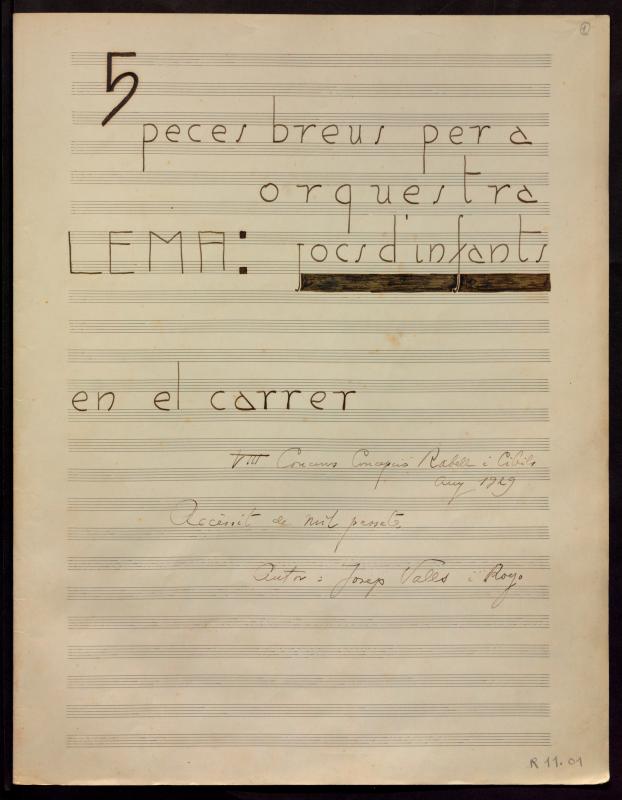 1
5
peces breus per a
orquestra
LEMA: jocs d'infants
en el carrer
VIII Concurs Concepció Rabell i Cibils
any 1929
Accèssit de mil pessetes
Autor: Josep Valls i Royo
R 11.01